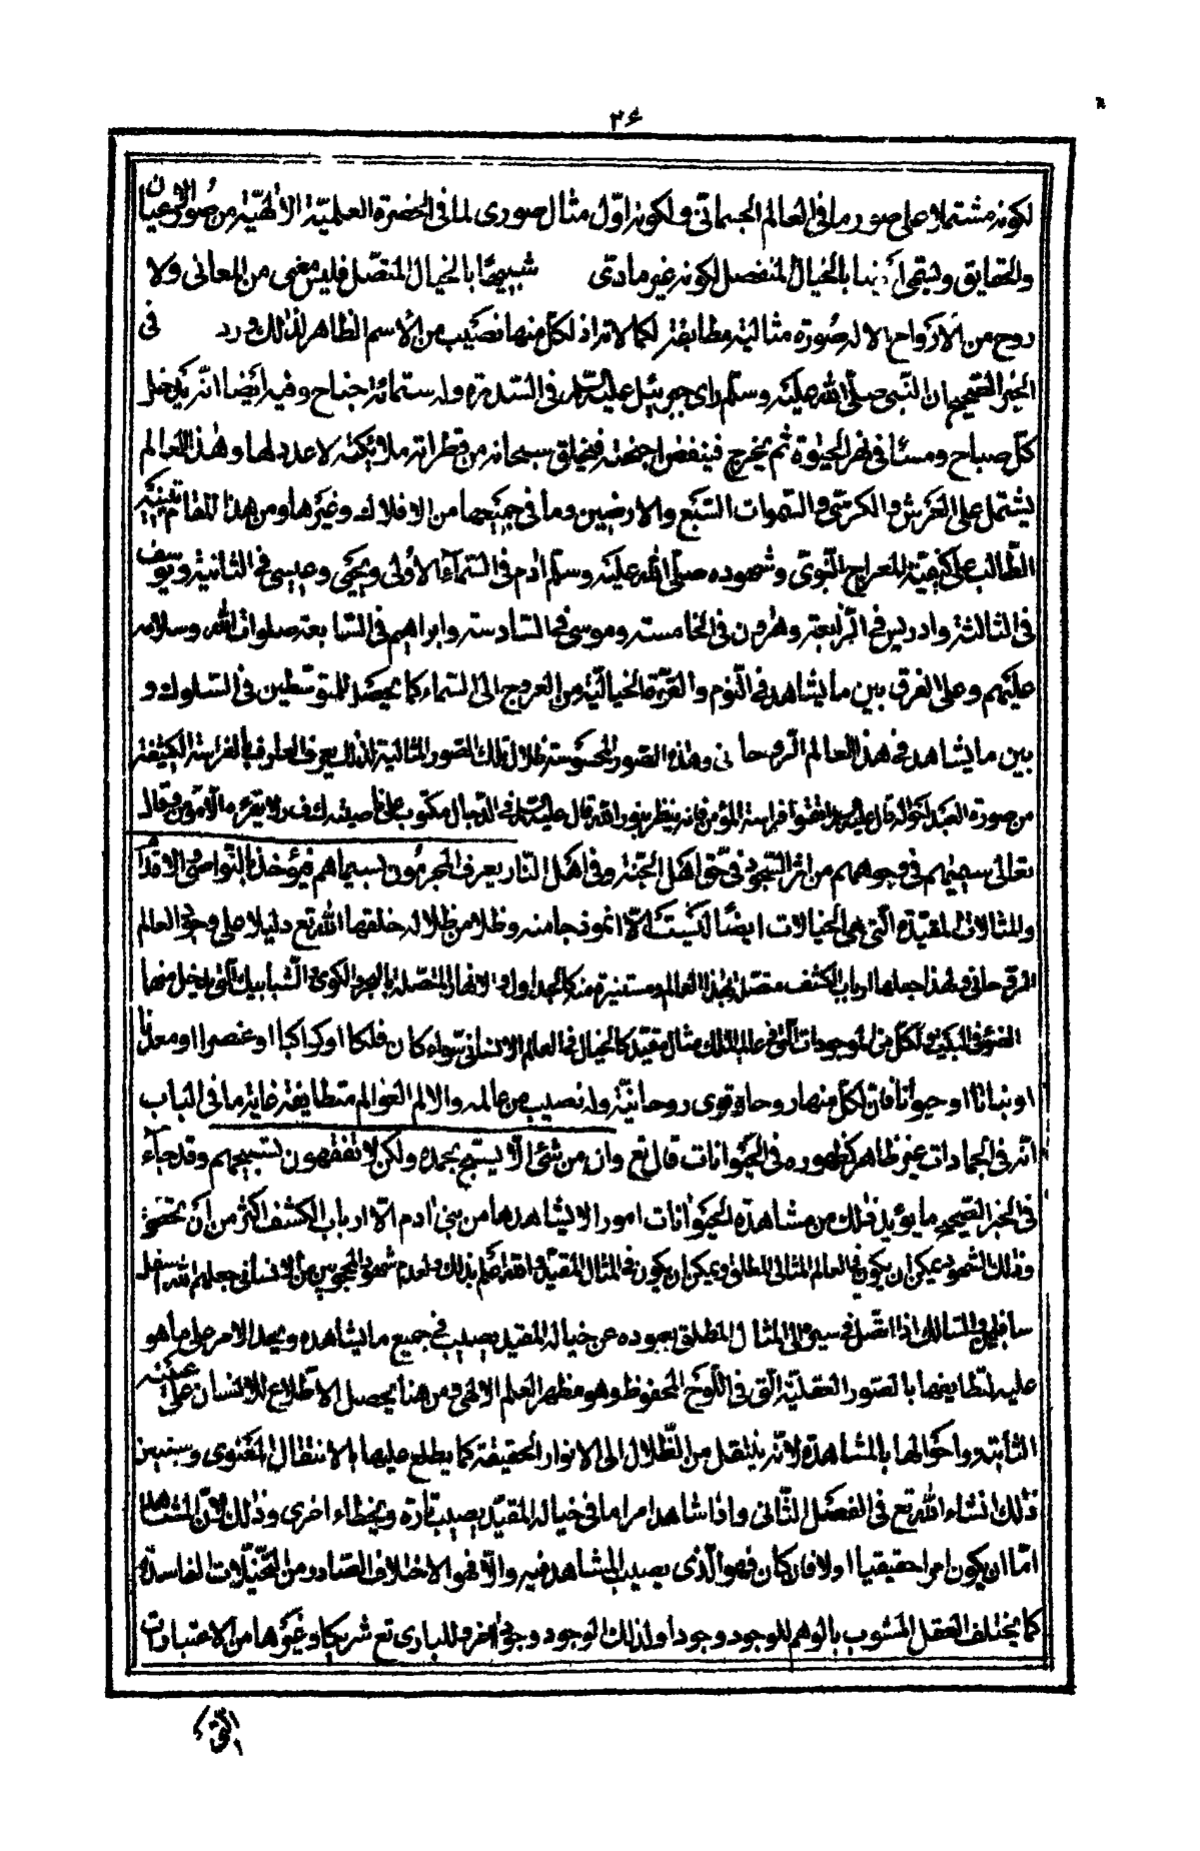 ٣۶
لكونه مشتملا على صور ما فى العالم الجسمانى ولكونه اوّل مثال صورى لما فى الحضرة العلميّة الالهيّة من صُور الاعيان
والحقايق ويسمّى ايضا بالخيال المنفصل لكونه غير مادّى شبيهًا بالخيال المتّصل فليس معنى من المعانى ولا
روح من الارواح الا له صُورة مثالية مطابقة لكمالاته اذ لكلّ منها نصَيب من الاسم الظاهر لذلك ورد فى
الخبر الصّحيح ان النّبى صلّى الله عليَه وسلّم راى جبرئيل عليه السّلم فى السّدرة وله ستمائة جناح وفيه ايضا انّه يدخل
كلّ صباح ومساء فى نهر الحيٰوة ثم يخرج فينفض اجنحته فيخلق سبحانه من قطراته ملائكة لا عدد لها وهذا العالم
يشتمل على العَرش والكرسىّ والسّموات السّبَع والارضين وما فى جميعها من الافلاك وغيَرها ومن هذا المقام يتنبّه
الطّالب على كيفيّة المعراج النّبوىّ وشهوده صلّى الله عليَه وسلّم ادَم فى السّمآء الاُولى ويحيَى وعيسى فى الثانية ويوسف
فى الثالثة وادريس فى الرّابعة وهٰرون فى الخامسة وموسى فى السّادسة وابراهيم فى السّابعة صلوات الله وسلامه
عليَهم وعلى الفرق بين ما يشاهد فى النّوم والقوّة الخياليّة من العروج الى السّماء كما يحصَل للمتوسّطين فى السّلوك و
بين ما يشاهد فى هذا العالم الرّوحانى وهذه الصّور المحسُوسة ظلال تلك الصّور المثالية لذلك يعرف العارف بالفراسة الكشفية
من صورة العبَد احواله قال عليه السّلم اتقوا فراسة المؤمن فانه ينظر بنور الله قال عليه السّلم فى الدّجال مكتوب على ناصيته ك ف ر لا يقرءه الا مؤمن وقال
تعالى سيمٰهم فى وجوههم من اثر السّجود فى حقّ اهَل الجنّة وفى اهَل النّار يعرف المجرمُون بسيماهم فيؤخذ بالنّواصى والاقدام
والمثالات المقيّدة الّتى هى الخيالات ايضًا ليَست الّا انموذجا منه وظلا من ظلاله خلقها الله تع دليلا على وجود العالم
الرّوحانى ولهذا جعلها ارباب الكشف متصّلة بهذا العالم ومستنيرة منه كالجداول والانهار المتّصلة بالبحر والكوى والشّبابيك الّتى يدخل منها
الضّوء فى البيت ولكلّ من الموجودات الّتى فى عالم الملك مثال مقيّد كالخيال فى العالم الانسانى سَواء كان فلكا او كوكبا او عنصرا او معدنا
او نباتا او حيوانا فان لكلّ منها روحا وقوى روحانيّة وله نصيب من عالمه والا لم العوالم متطابقة غاية ما فى الباب
انّه فى الجمادات غير ظاهر كظهوره فى الحيَوانات قال تع وان من شئ الّا يسبّح بحمده ولكن لا تفقهون تسبيحهم وقد جآء
فى الخبر الصّحيح ما يؤيد ذلك من مشاهدة الحيَوانات امورا لا يشاهدها من بنى ادم الّا ارباب الكشف اكثر من ان تحصى
وذلك الشّهود يمكن ان يكون فى العالم المثالى المطلق ويمكن ان يكون فى المثال المقيّد والله اعَلم بذلك ولعدم شهود المحجوبين من الانسانى جعلهم الله اسفل
سافلين والسّالك اذا اتّصل فى سيره الى المثال المطلق بعبوره عن خياله المقيد يصيب فى جميع ما يشاهده ويجد الامر على ما هو
عليه لتطابقها بالصّور العقليّة الّتى فى اللّوح المحفوظ وهو مظهر العلم الالهى ومن هنا يحصل الاطّلاع للانسان على عينه
الثّابتة واحوالها بالمشاهدة لانّه ينتقل من الظّلال الى الانوار الحقيقيّة كما يطلع عليها بالانتقال المعَنوى وسنبيّن
ذلك انشاء الله تع فى الفصَل الثّانى واذا شاهد امرا ما فى خياله المقيّد يصيب تارة ويخطاء اخرى وذلك لانّ المشاهد
امّا ان يكون امرا حقيقيا اولا فان كان فهو الّذى يصيب المشاهد فيه والّا فهو الاختلاق الصّادر من التّخيّلات الفاسدة
كما يختلق العقل المشوب بالوهم للوجود وجودا ولذلك الوجود وجودا اخر وللبارى تع شريكا وغيَرها من الاعتبارات
الّتى